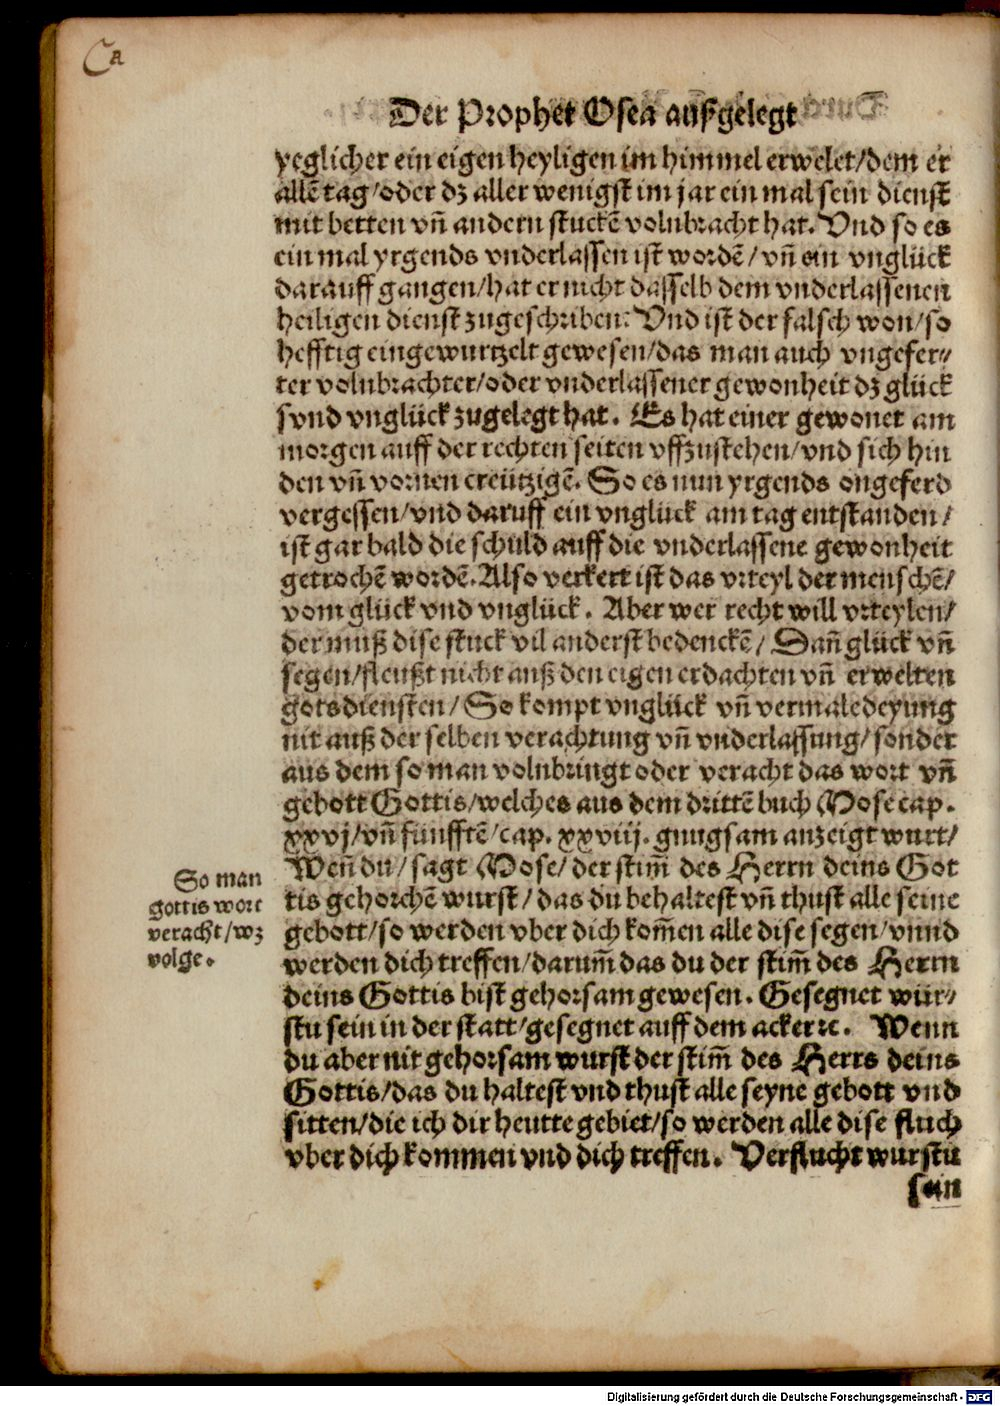 Der Prophet Osea außgelegt
yeglicher ein eigen heyligen im himmel erwelet/dem er
allē tag/oder dz aller wenigst im jar ein mal sein dienst
mit betten vn̄ andern stuckē volnbracht hat. Vnd so es
ein mal yrgends vnderlassen ist wordē/ vn̄ ein vnglück
darauff gangen/hat er nicht dasselb dem vnderlassenen
heiligen dienst zugeschriben: Vnd ist der falsch won/so
hefftig eingewurtzelt gewesen/das man auch vngefer⸗
ter volnbrachter/oder vnderlassener gewonheit dz glück
svnd vnglück zugelegt hat. Es hat einer gewonet am
morgen auff der rechten seiten vffzustehen/vnd sich hin
den vn̄ vornen creützigē. So es nun yrgends ongeferd
vergessen/vnd daruff ein vnglück am tag entstanden/
ist gar bald die schuld auff die vnderlassene gewonheit
getrochē wordē. Also verkert ist das vrteyl der menschē/
vom glück vnd vnglück. Aber wer recht will vrteylen/
der muß dise stuck vil anderst bedenckē/ Dañ glück vn̄
segen/fleußt nicht auß den eigen erdachten vn̄ erwelten
gotsdiensten/ So kompt vnglück vn̄ vermaledeyung
nit auß der selben verachtung vn̄ vnderlassung/sonder
aus dem so man volnbringt oder veracht das wort vn̄
gebott Gottis/welches aus dem drittē buch Mose cap.
xxvj/vn̄ fünfftē/cap. xxviij. gnugsam anzeigt wurt/
Weñ du/ sagt Mose/ der stim̄ des Herrn deins Got
tis gehorchē wurst/ das du behaltest vn̄ thust alle seine
gebott/so werden vber dich kom̄en alle dise segen/vnnd
werden dich treffen/darum̄ das du der stim̄ des Herrn
deins Gottis bist gehorsam gewesen. Gesegnet wür⸗
stu sein in der statt/gesegnet auff dem acker ꝛc. Wenn
du aber nit gehorsam wurst der stim̄ des Herrs deins
Gottis/das du haltest vnd thust alle seyne gebott vnd
sitten/die ich dir heutte gebiet/so werden alle dise fluch
vber dich kommen vnd dich treffen. Verflucht wurstu
sein
So man
gottis wort
veracht/wz
volge.
Digitalisierung gefördert durch die Deutsche Forschungsgemeinschaft - DFG